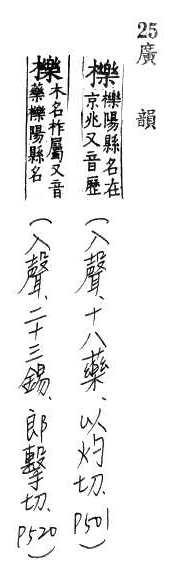 25廣韻
櫟櫟陽縣名在京兆又音歷(入聲、十八藥、以灼切、P501)
櫟木名柞屬又音藥櫟陽縣名(入聲、二十三錫、郎擊切、P520)